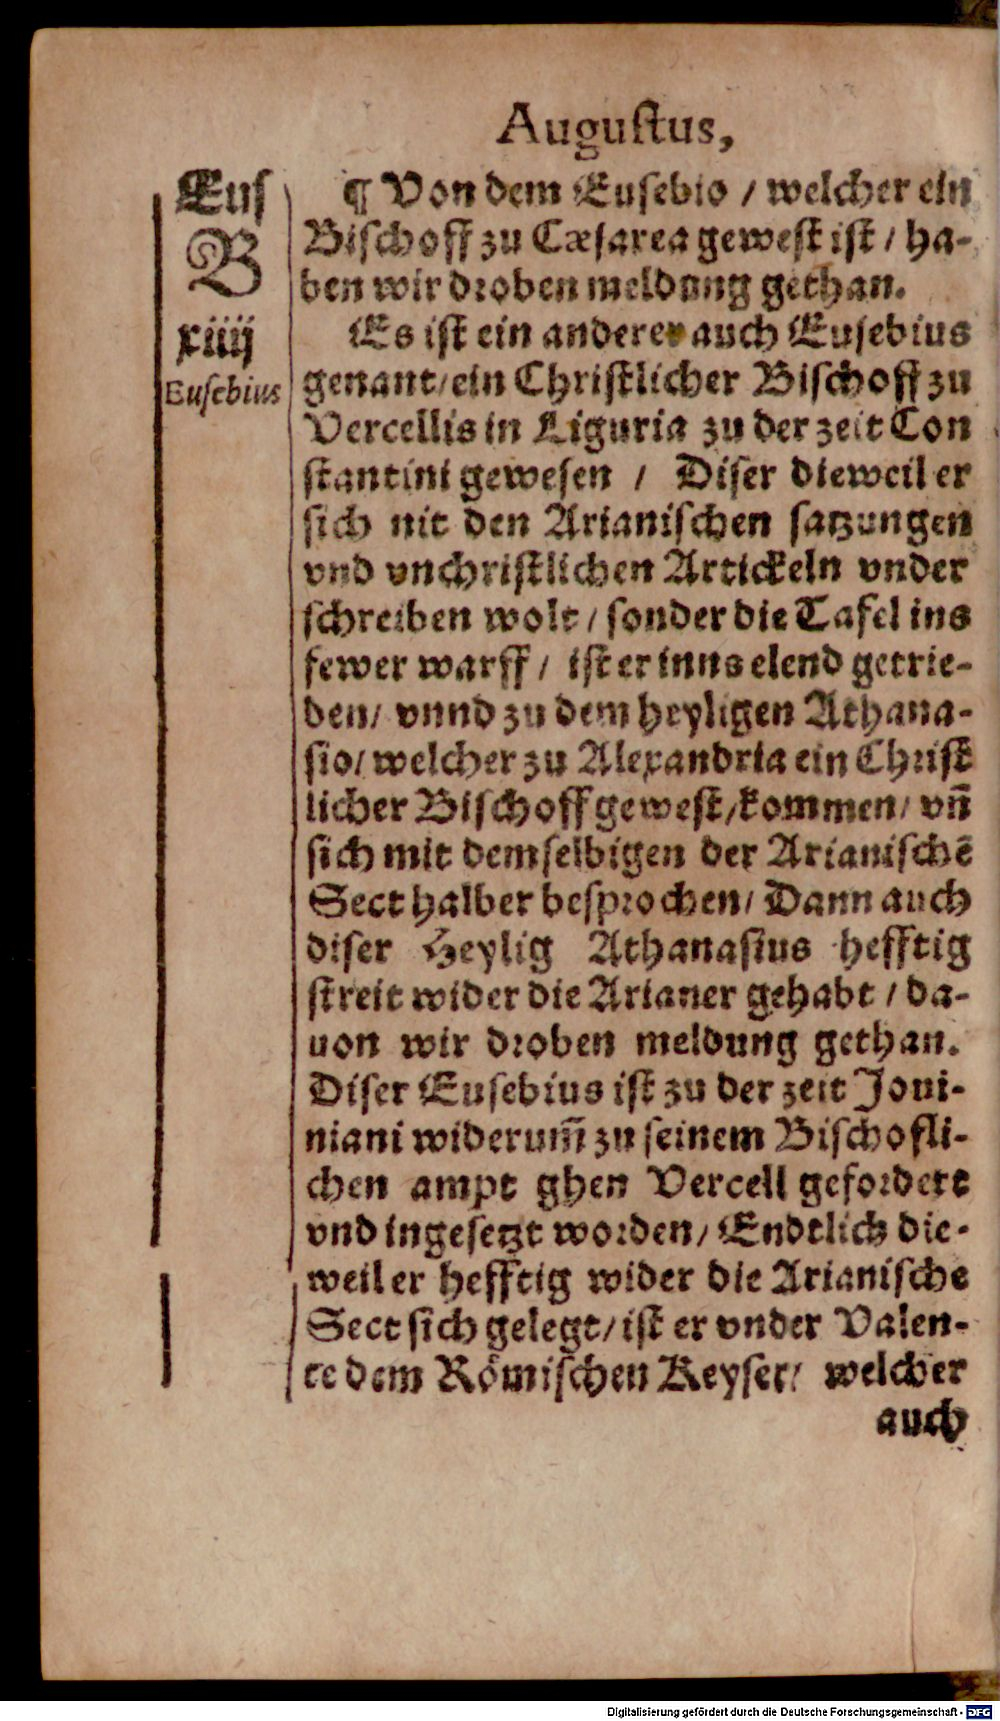 Augustus,
Eus
B
xiiij
Eusebius
¶ Von dem Eusebio / welcher ein
Bischoff zu Cæsarea gewest ist / ha-
ben wir droben meldung gethan.
Es ist ein anderer auch Eusebius
genant/ein Christlicher Bischoff zu
Vercellis in Liguria zu der zeit Con
stantini gewesen / Diser dieweil er
sich nit den Arianischen satzungen
vnd vnchristlichen Artickeln vnder
schreiben wolt / sonder die Tafel ins
fewer warff / ist er inns elend getrie-
ben/ vnnd zu dem heyligen Athana-
sio/ welcher zu Alexandria ein Christ
licher Bischoff gewest/kommen/ vñ
sich mit demselbigen der Arianischẽ
Sect halber besprochen/ Dann auch
diser Heylig Athanasius hefftig
streit wider die Arianer gehabt / da-
uon wir droben meldung gethan.
Diser Eusebius ist zu der zeit Joui-
niani widerum̃ zu seinem Bischofli-
chen ampt ghen Vercell gefordert
vnd ingesetzt worden/ Endtlich die-
weil er hefftig wider die Arianische
Sect sich gelegt/ ist er vnder Valen-
te dem Römischen Keyser/ welcher
auch
Digitalisierung gefördert durch die Deutsche Forschungsgemeinschaft - DFG